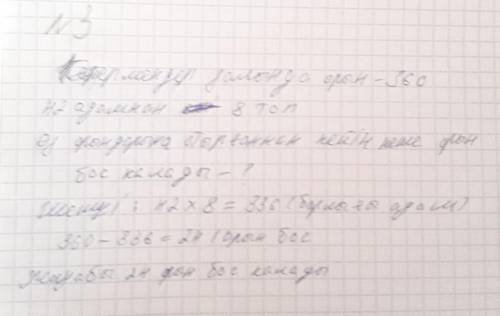 N3
Көрермендер залында орын - 360
42 адамнан 8 топ
Өз орындарына отырғаннан кейін неше орын
бос калады - ?
Шешуі: 42 х 8 = 336 (барлығы адам)
360 - 336 = 24 (орын бос
Жауабы 24 орын бос калады